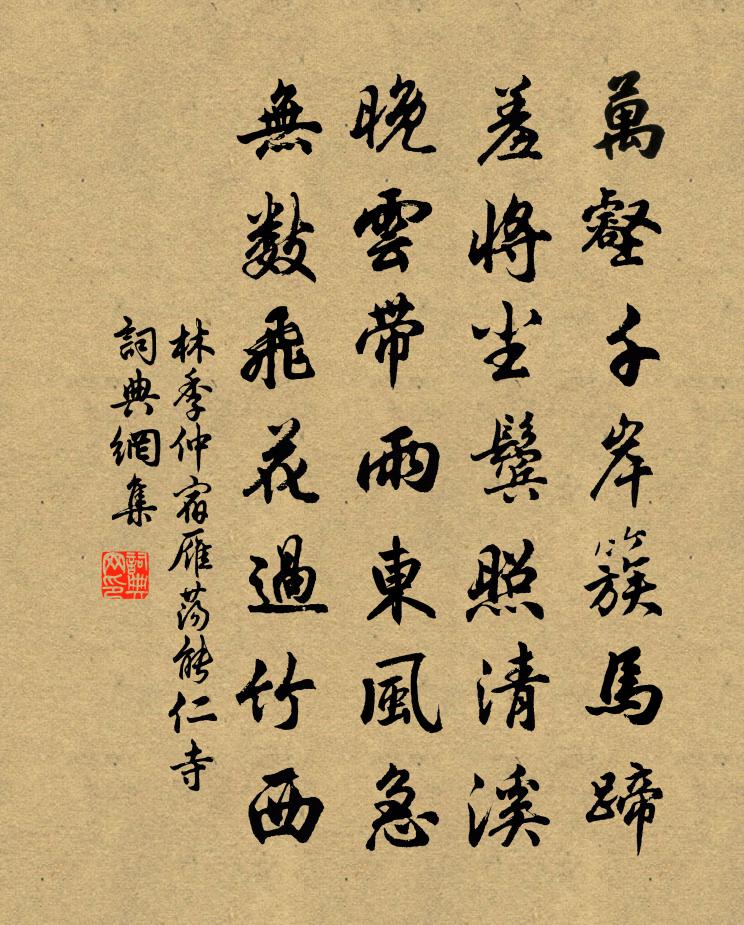 萬壑千岸簇馬蹄
羞將尘鬓照清溪
晚雲带雨東風急
無数飛花過竹西
林季仲宿雁荡能仁寺
詞典網集
詞典網印